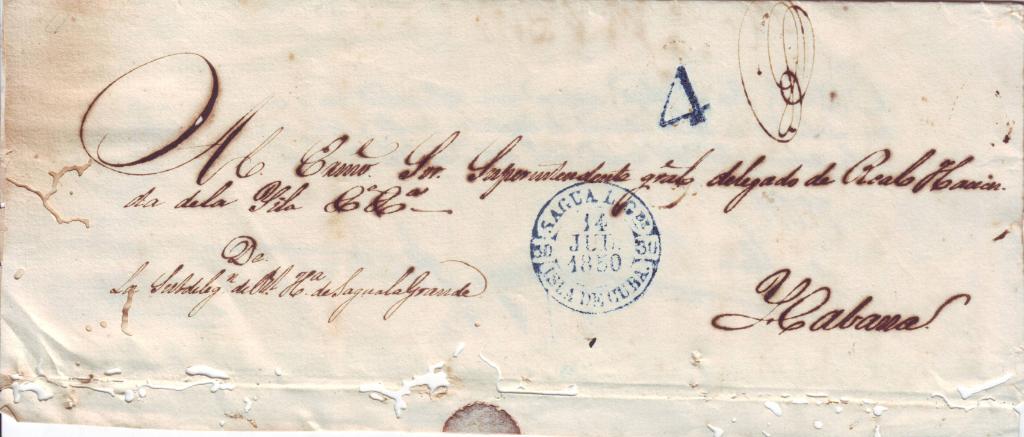 4
Al Exmo. Sor. Superintendente gral. delegado de Real Hacien-
da de la Ysla &a &a
SAGUA L. Gde
14
JUL.
1850
ISLA DE CUBA.
De
La Subdelegn de Rl Hda de Sagua la Grande
Habana.